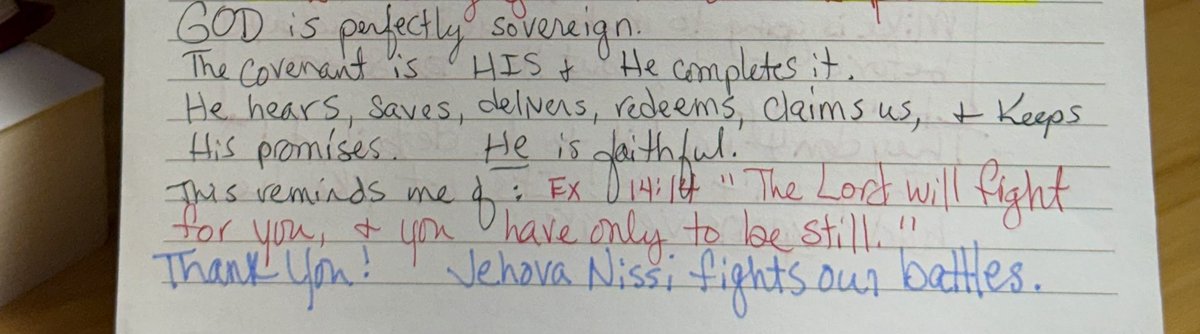 GOD is perfectly sovereign.
The Covenant is HIS + He completes it.
He hears, saves, delivers, redeems, claims us, + Keeps
His promises. He is faithful.
This reminds me of : Ex 14:14 "The Lord will fight
for you, + you have only to be still."
Thank You! Jehova Nissi fights our battles.